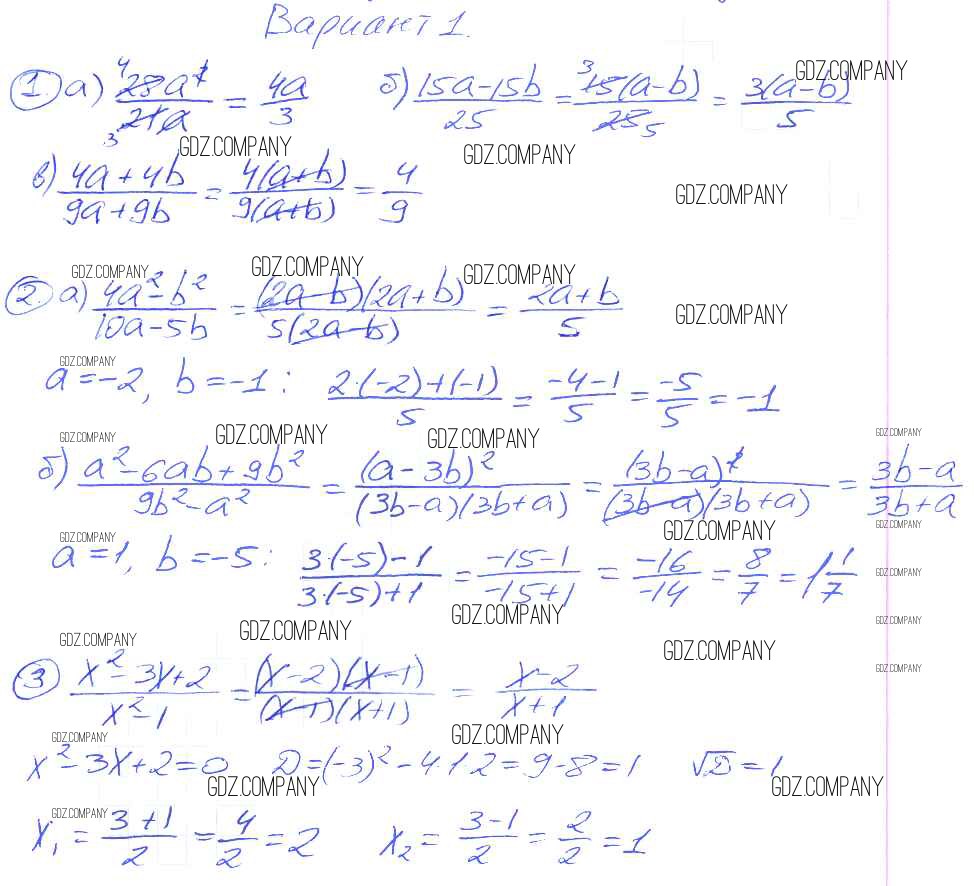 Вариант 1.
① а) 28a²/21a = 4a/3 б) (15a-15b)/25 = 15(a-b)/25 = 3(a-b)/5
GDZ.COMPANY
GDZ.COMPANY GDZ.COMPANY
в) (4a+4b)/(9a+9b) = 4(a+b)/9(a+b) = 4/9
GDZ.COMPANY
GDZ.COMPANY GDZ.COMPANY GDZ.COMPANY
② а) (4a²-b²)/(10a-5b) = (2a-b)(2a+b)/5(2a-b) = (2a+b)/5
GDZ.COMPANY
GDZ.COMPANY
a=-2, b=-1: (2·(-2)+(-1))/5 = (-4-1)/5 = -5/5 = -1
GDZ.COMPANY GDZ.COMPANY GDZ.COMPANY GDZ.COMPANY
б) (a²-6ab+9b²)/(9b²-a²) = (a-3b)²/(3b-a)(3b+a) = (3b-a)²/(3b-a)(3b+a) = (3b-a)/(3b+a)
GDZ.COMPANY GDZ.COMPANY GDZ.COMPANY
a=1, b=-5: (3·(-5)-1)/(3·(-5)+1) = (-15-1)/(-15+1) = -16/-14 = 8/7 = 1 1/7
GDZ.COMPANY
GDZ.COMPANY GDZ.COMPANY GDZ.COMPANY GDZ.COMPANY
GDZ.COMPANY
③ (x²-3x+2)/(x²-1) = (x-2)(x-1)/(x-1)(x+1) = (x-2)/(x+1)
GDZ.COMPANY
GDZ.COMPANY GDZ.COMPANY
x²-3x+2=0 D=(-3)²-4·1·2=9-8=1 √D=1
GDZ.COMPANY GDZ.COMPANY
GDZ.COMPANY
x₁ = (3+1)/2 = 4/2 = 2 x₂ = (3-1)/2 = 2/2 = 1